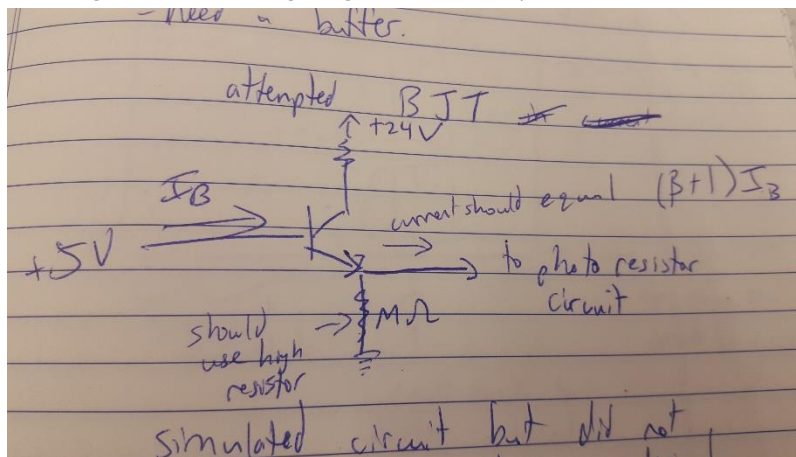 - Need a buffer.
attempted BJT
↑ +24V
I_B
current should equal (β+1)I_B
+5V
to photo resistor
circuit
should → MΩ
use high
resistor
simulated circuit but did not